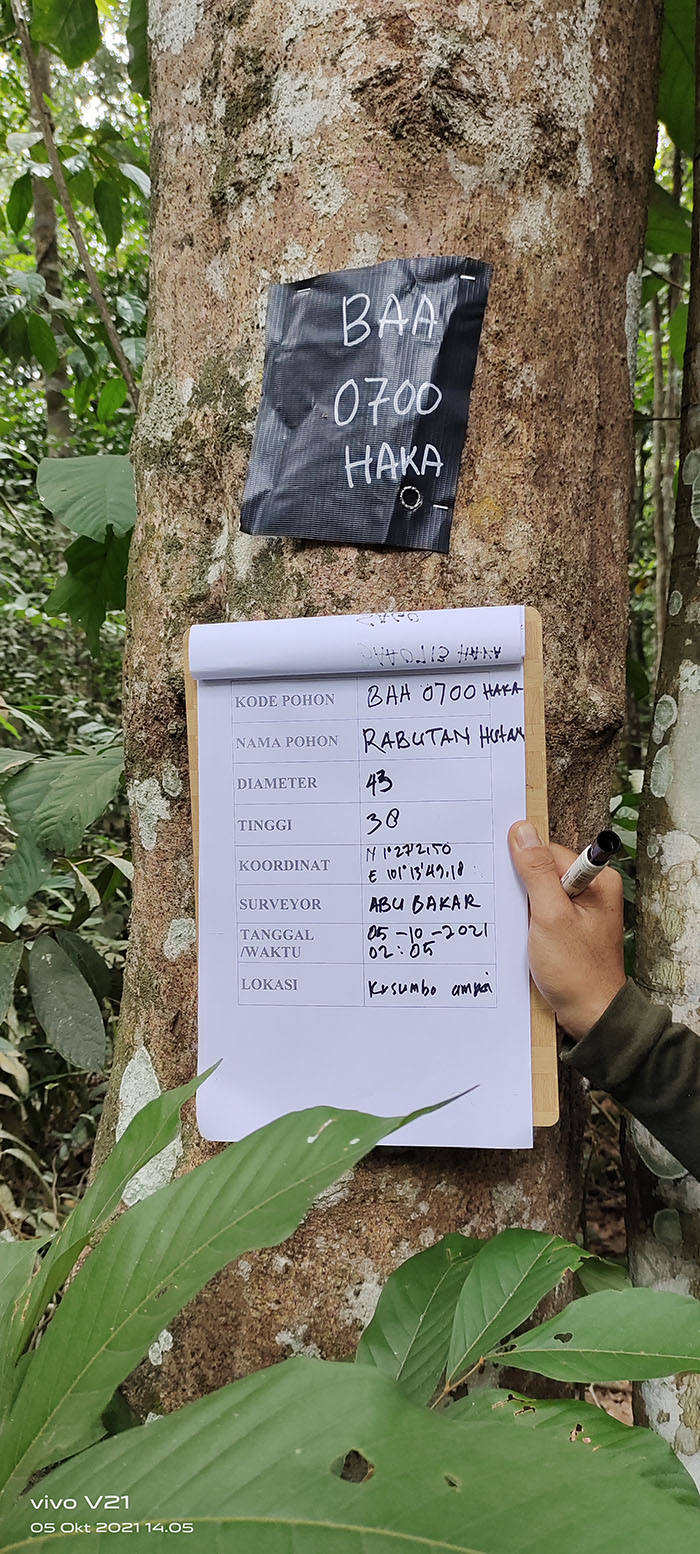 BAA
0700
HAKA
KODE POHON BAA 0700 HAKA
NAMA POHON RABUTAN HUTAN
DIAMETER 43
TINGGI 38
KOORDINAT N 1°27'21.50
E 101°13'49.18
SURVEYOR ABU BAKAR
TANGGAL 05-10-2021
/WAKTU 02:05
LOKASI Kusumbo ampai
vivo V21
05 Okt 2021 14.05